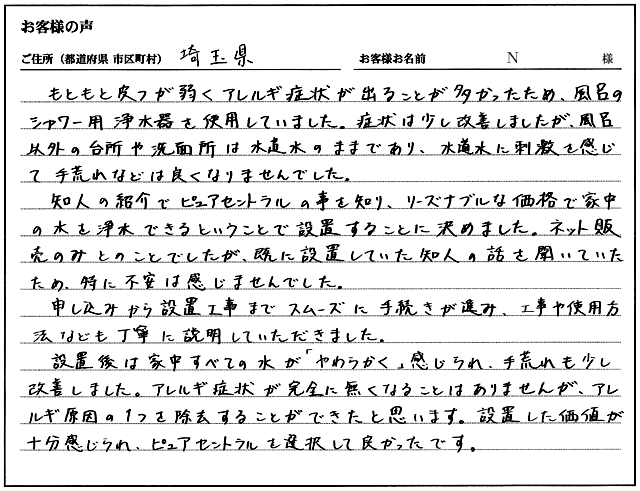 お客様の声
ご住所（都道府県 市区町村） 埼玉県 お客様お名前 N 様
もともと皮フが弱くアレルギ症状が出ることが多かったため、風呂の
シャワー用浄水器を使用していました。症状は少し改善しましたが、風呂
以外の台所や洗面所は水道水のままであり、水道水に刺激を感じ
て手荒れなどは良くなりませんでした。
知人の紹介でピュアセントラルの事を知り、リーズナブルな価格で家中
の水を浄水できるということで設置することに決めました。ネット販
売のみとのことでしたが、既に設置していた知人の話を聞いていた
ため、特に不安は感じませんでした。
申し込みから設置工事までスムーズに手続きが進み、工事や使用方
法なども丁寧に説明していただきました。
設置後は家中すべての水が「やわらかく」感じられ、手荒れも少し
改善しました。アレルギ症状が完全に無くなることはありませんが、アレ
ルギ原因の1つを除去することができたと思います。設置した価値が
十分感じられ、ピュアセントラルを選択して良かったです。